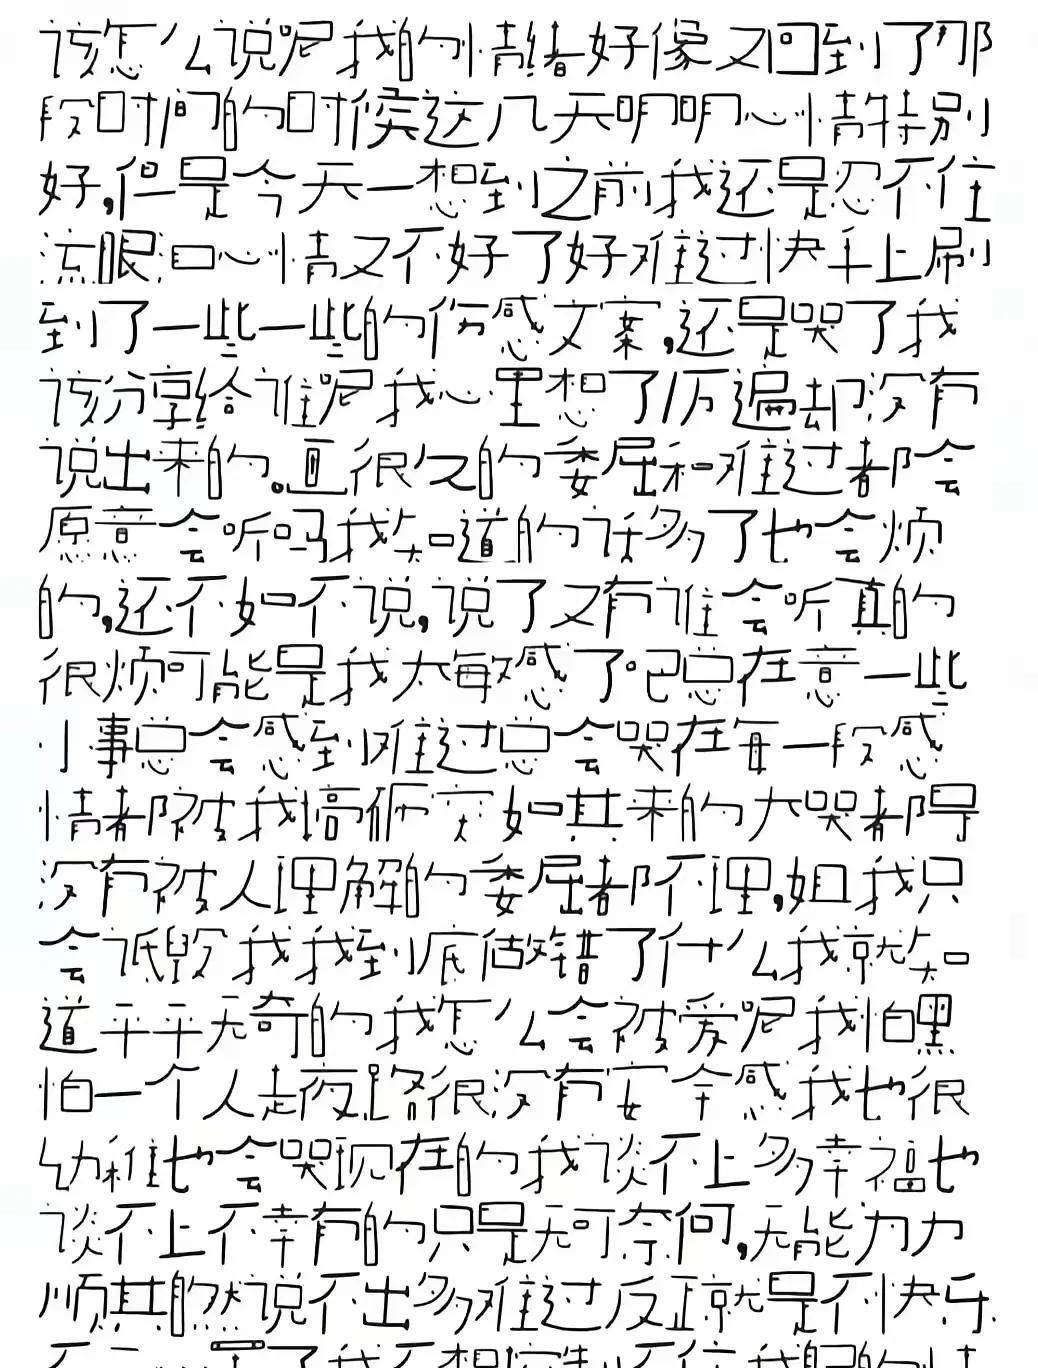 该怎么说呢我的情绪好像又回到了那
段时间的时候这几天明明心情特别
好,但是今天一想到之前我还是忍不住
流眼泪心情又不好了好难过快手上刷
到了一些一些的伤感文案,还是哭了我
该分享给谁呢我心里想了厉遍却没有
说出来的。直很久的委屈和难过都会
愿意会听吗我知道的话多了也会烦
的,还不如不说,说了又有谁会听真的
很烦可能是我太敏感了吧总在意一些
小事总会感到难过总会哭在每一段感
情都被我搞砸突如其来的大哭都是
没有被人理解的委屈都不理,姐我只
会诋毁我我到底估错了什么我就知
道平平无奇的我怎么会被爱呢我怕黑
怕一个人走夜路很没有安全感我也很
幼稚也会哭现在的我谈不上多幸福也
谈不上不幸有的只是无可奈何,无能为力
顺其自然说不出多难过反正就是不快乐.